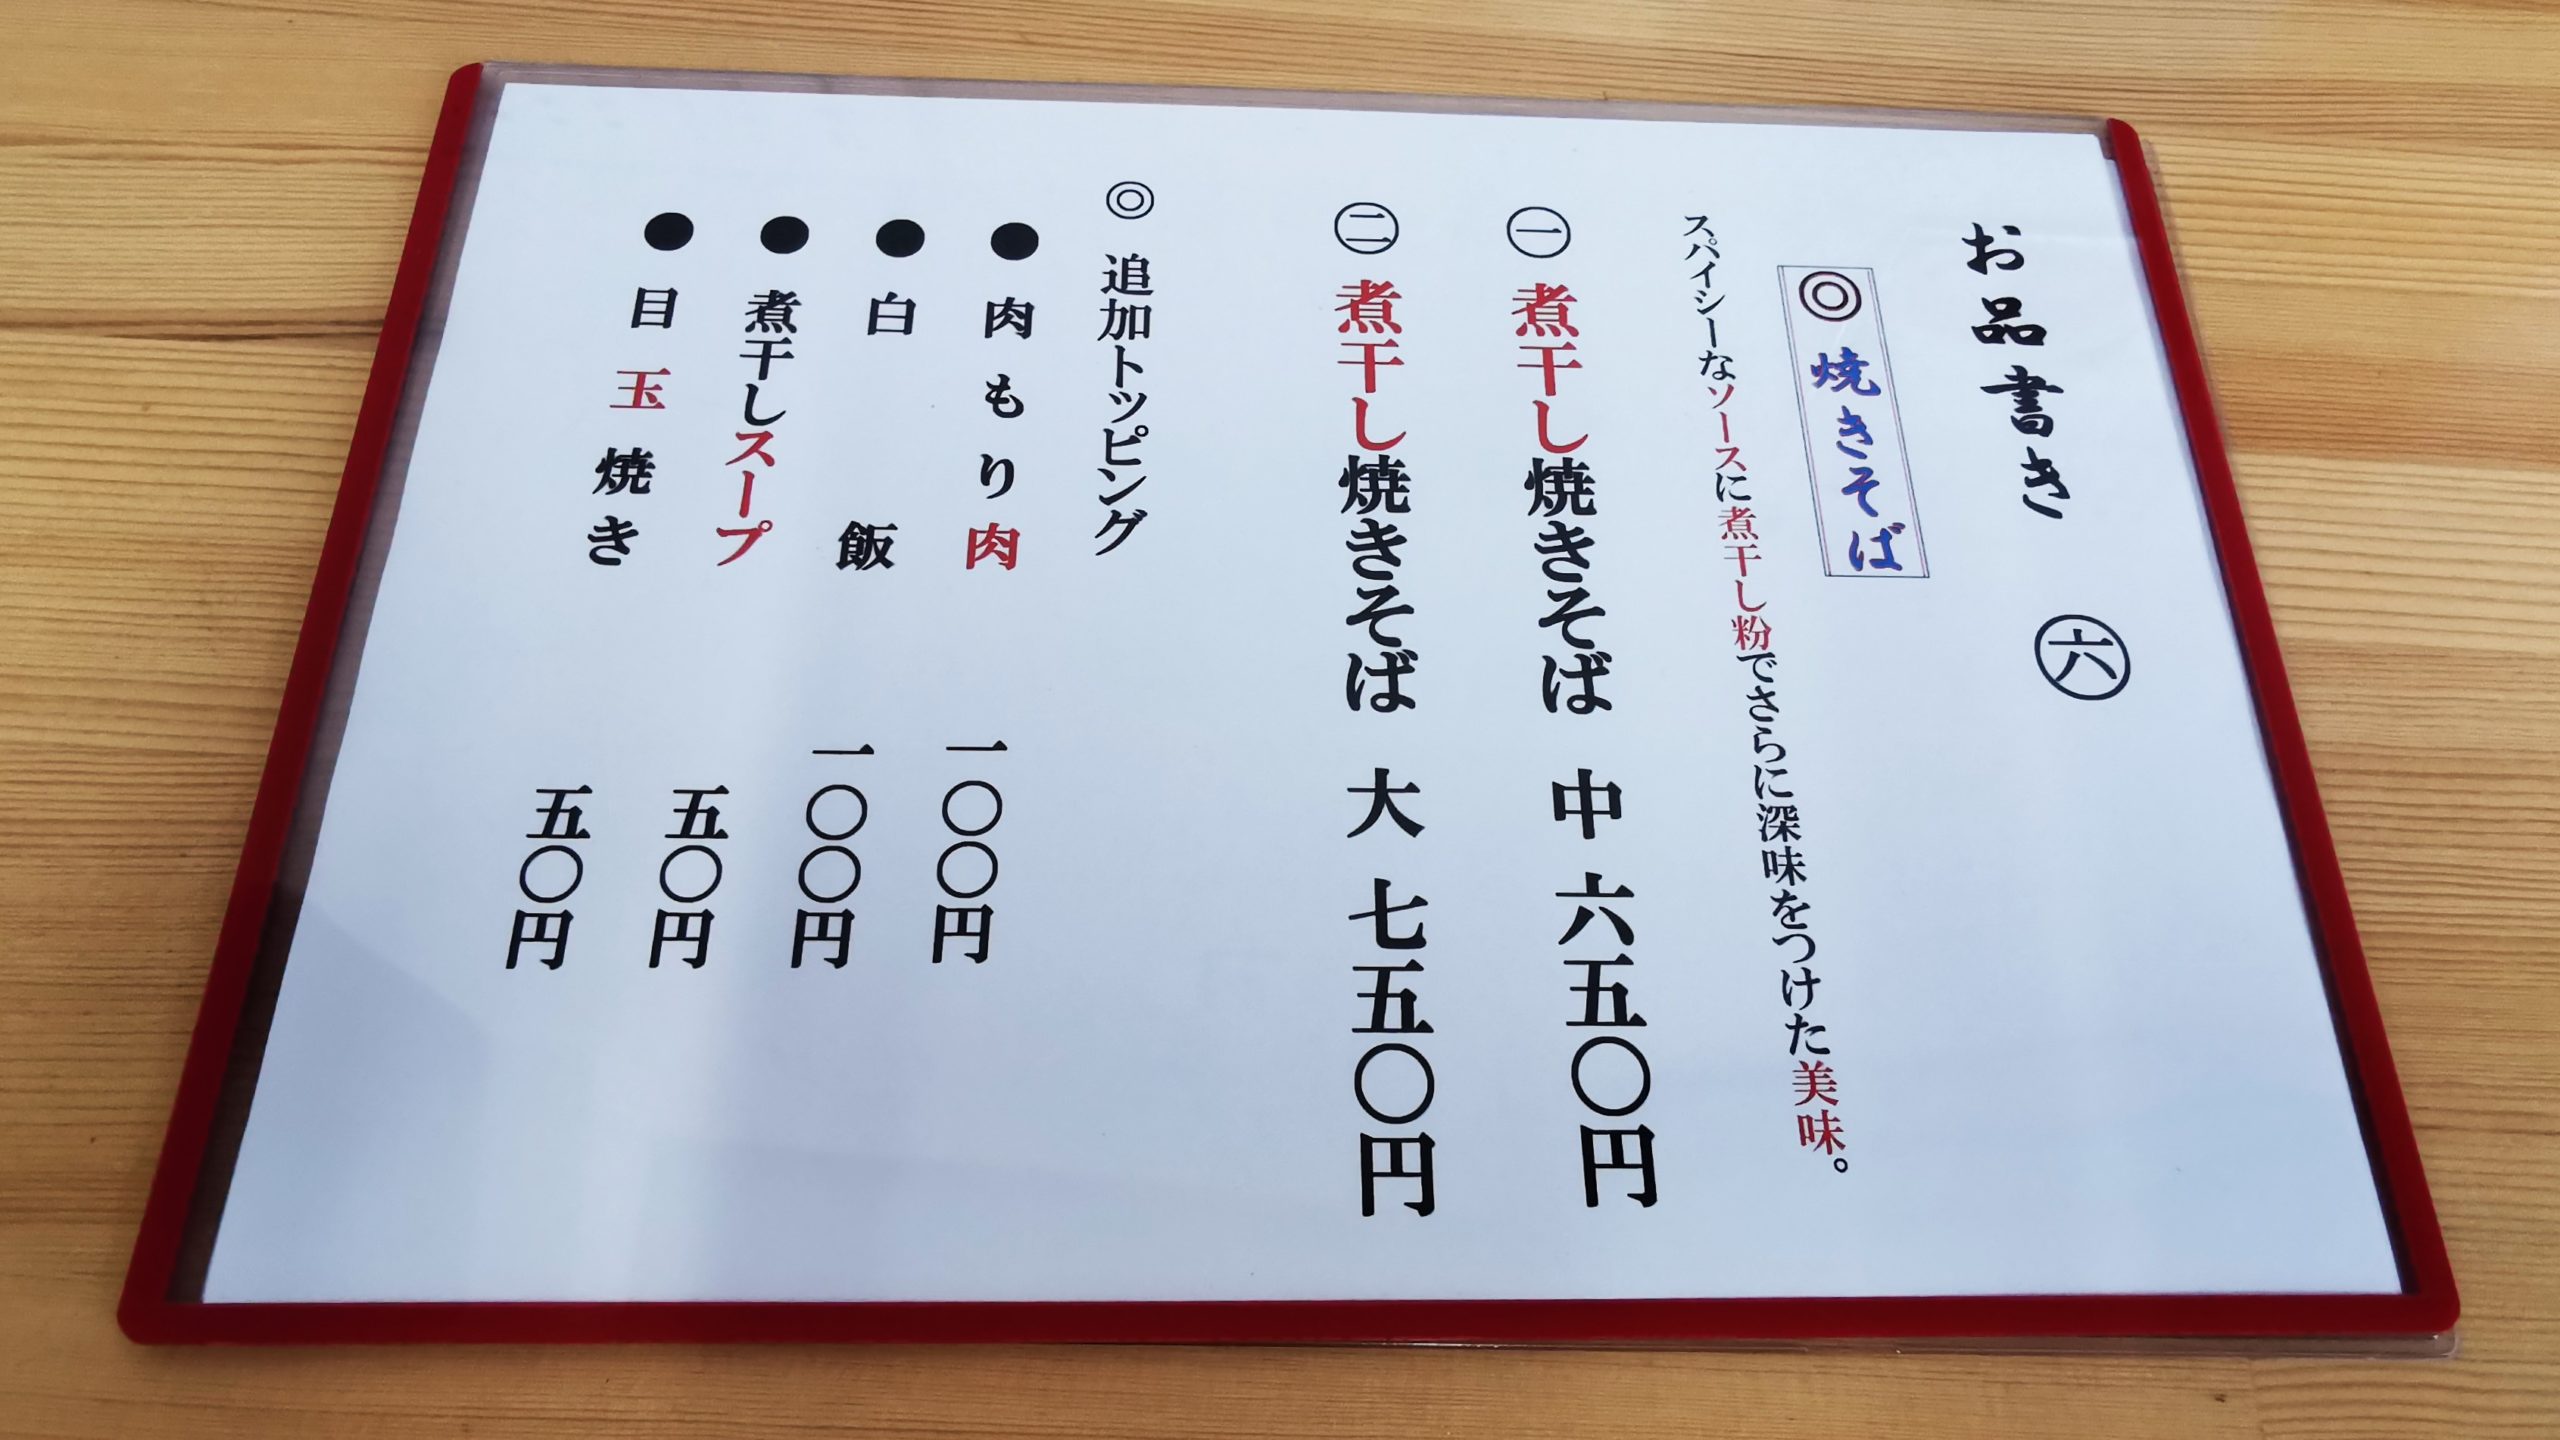 お品書き ㊅
◎ 焼きそば
スパイシーなソースに煮干し粉でさらに深味をつけた美味。
㊀ 煮干し焼きそば 中 六五〇円
㊁ 煮干し焼きそば 大 七五〇円
◎ 追加トッピング
● 肉もり肉 一〇〇円
● 白飯 一〇〇円
● 煮干しスープ 五〇円
● 目玉焼き 五〇円